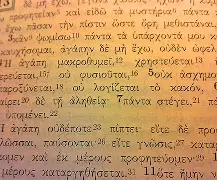 13 δὲ μὴ ἔχω,
προφητείαν⁶ καὶ εἰδῶ τὰ μυστήρια
ἔχω πᾶσαν τὴν πίστιν ὥστε ὄρη μεθιστάναι
³κἂν⁹ ψωμίσω¹⁰ πάντα τὰ ὑπάρχοντά μου κ
καυχήσωμαι, ἀγάπην δὲ μὴ ἔχω, οὐδὲν ὠφελ
Ἡ ἀγάπη μακροθυμεῖ,¹² χρηστεύεται¹³ ἡ
ερεύεται,¹⁵⁾ οὐ φυσιοῦται,¹⁶ ⁵οὐκ ἀσχημο
παροξύνεται,¹⁸ οὐ λογίζεται τὸ κακόν, ⁶
αίρει²⁰ δὲ τῇ ἀληθείᾳ· ⁷πάντα στέγει,²¹ π
ὑπομένει.²²
Ἡ ἀγάπη οὐδέποτε²³ πίπτει· εἴτε δὲ προ
λῶσσαι, παύσονται·²⁶ εἴτε γνῶσις,²⁷ κατα
ομεν καὶ ἐκ μέρους προφητεύομεν·²⁹ 1
μέρους καταργηθήσεται.³¹ 11ὅτε ἤμην ν